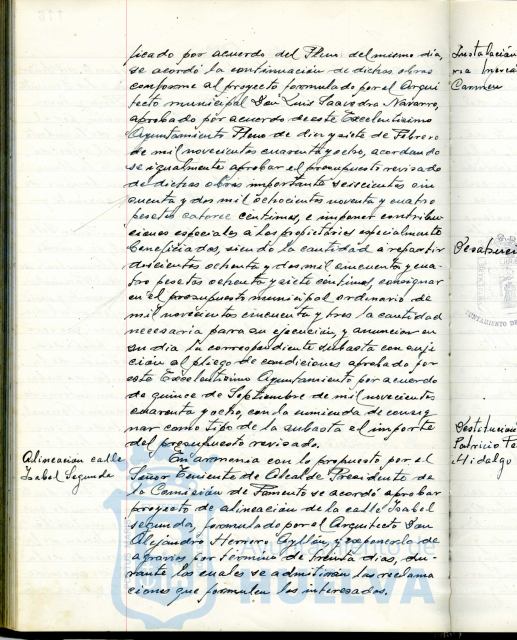 ficado por acuerdo del Pleno del mismo dia,
se acordó la continuación de dichas obras
conforme al proyecto formulado por el Arqui
tecto municipal Don Luis Saavedra Navarro,
aprobado por acuerdo de este Excelentísimo
Ayuntamiento Pleno de diez y siete de Febrero
de mil novecientos cuarenta y ocho, acordando
se igualmente aprobar el presupuesto revisado
de dichas obras importante seiscientas cin
cuenta y dos mil ochocientos noventa y cuatro
pesetas catorce céntimos, e imponer contribu
ciones especiales a los propietarios especialmente
beneficiados, siendo la cantidad a repartir
doscientos ochenta y dos mil cincuenta y cua
tro pesetas ochenta y siete céntimos, consignar
en el presupuesto municipal ordinario de
mil novecientos cincuenta y tres la cantidad
necesaria para su ejecución, y anunciar en
su dia la correspondiente subasta con suje
ción al pliego de condiciones aprobado por
este Excelentísimo Ayuntamiento por acuerdo
de quince de Septiembre de mil novecientos
cuarenta y ocho, con la enmienda de consig
nar como tipo de la subasta el importe
del presupuesto revisado.
Alineación calle
Isabel Segunda
En armonia con lo propuesto por el
Señor Teniente de Alcalde Presidente de
la Comisión de Fomento se acordó aprobar
proyecto de alineación de la calle Isabel
segunda, formulado por el Arquitecto Don
Alejandro Herrero Ayllón, y exponerlo de
agravios por término de treinta dias, du-
rante los cuales se admitirán las reclama
ciones que formulen los interesados.
Instalación
Carmen
Patricio
Hidalgo
HUELVA